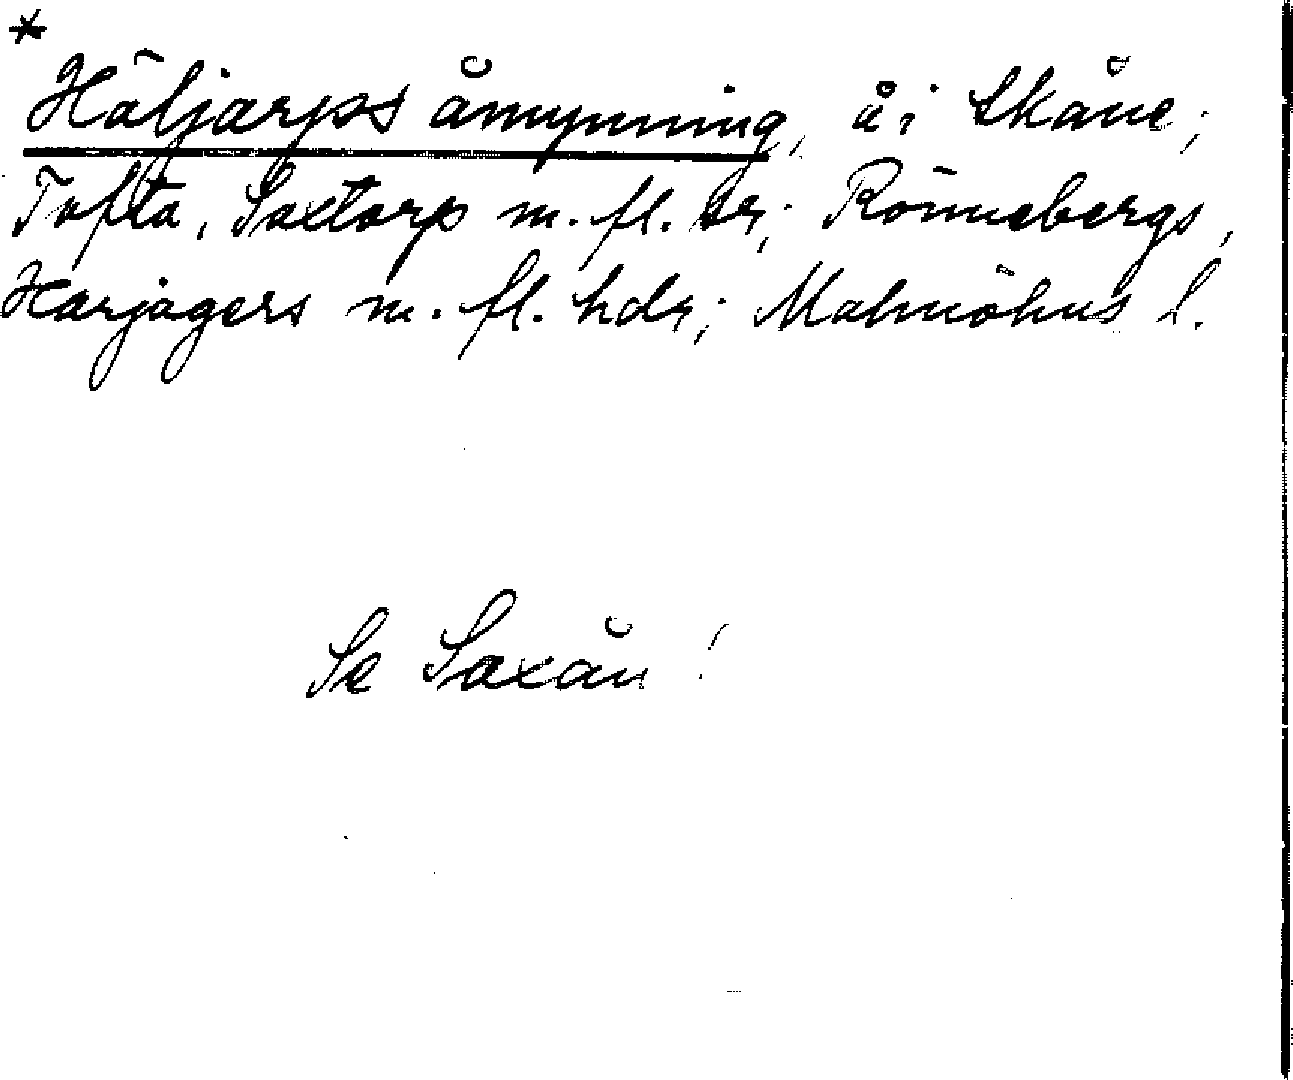 *
Häljarps åmynning, å i Skåne;
Tofta, Saxtorp m. fl. snr; Rönnebergs,
Harjagers m. fl. hdr; Malmöhus l.
Se Saxån!